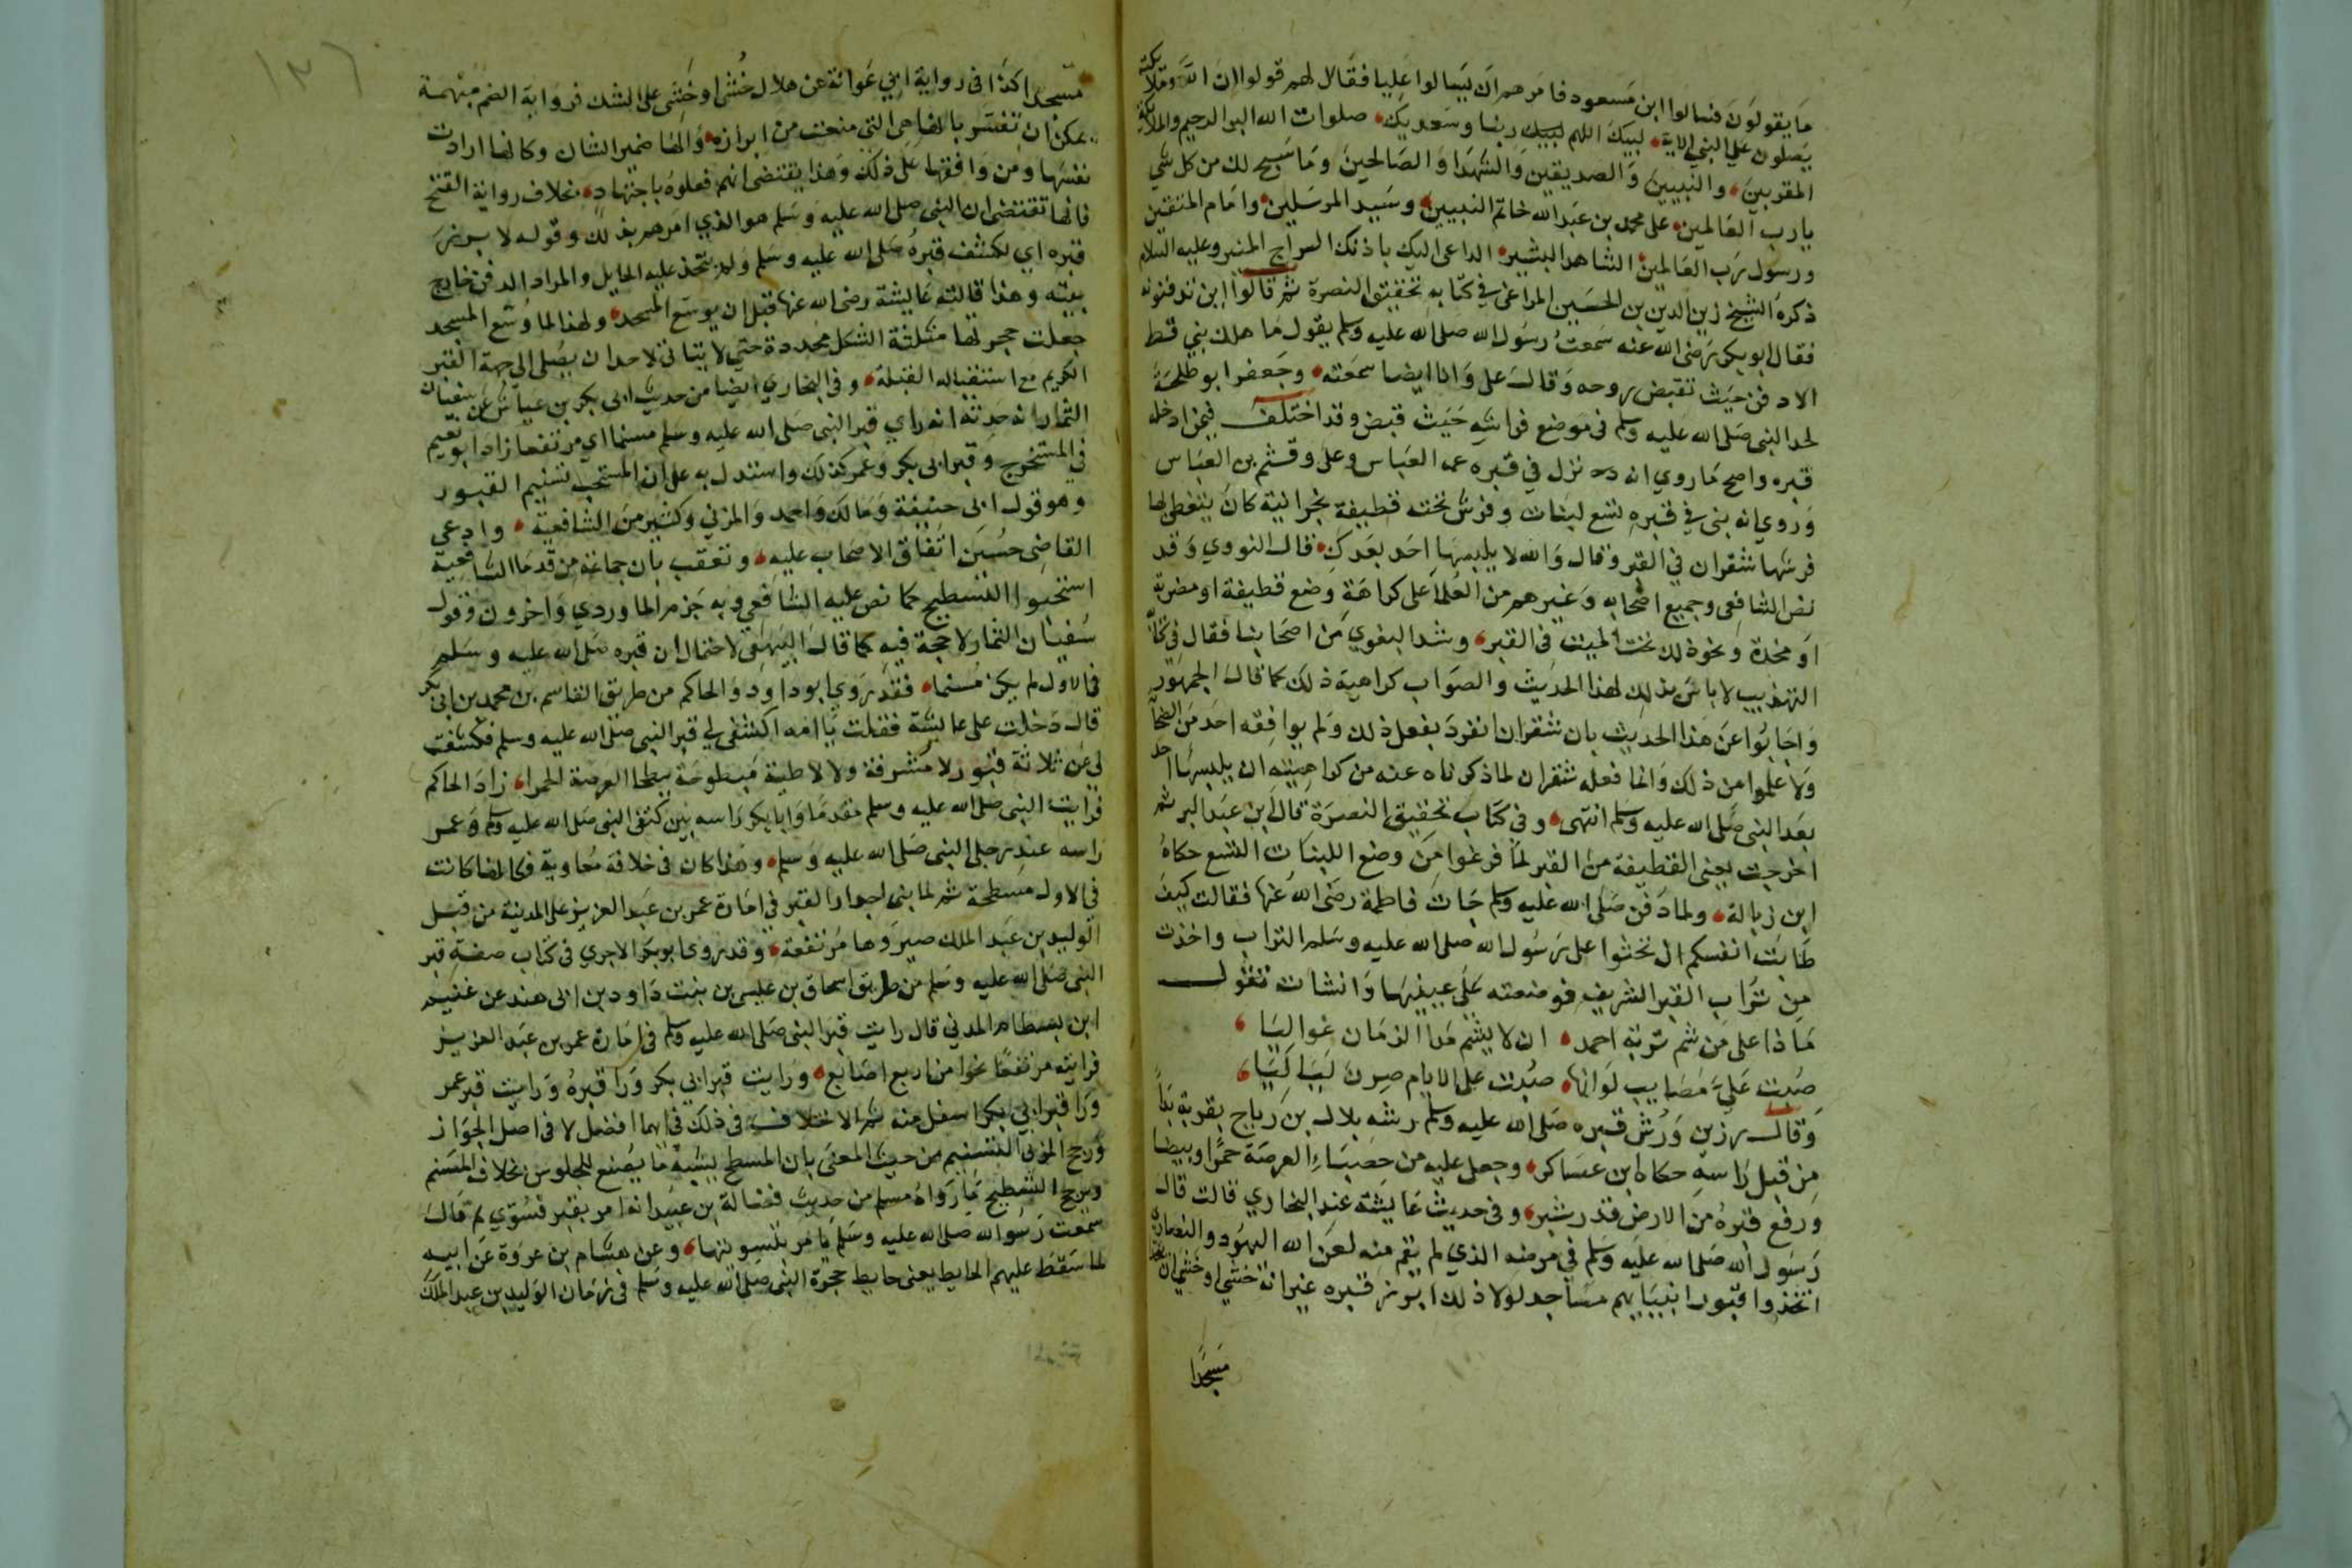 ما يقولون فسالوا ابن مسعود فامرهم ان يسالوا عليا فقال لهم قولوا ان الله وملائكته
يصلون على النبي الاية لبيك اللهم لبيك ربنا وسعديك صلوات الله البر الرحيم والملائكة
المقربين والنبيين والصديقين والشهدا والصالحين وما سبح لك من كل شي
يارب العالمين على محمد بن عبد الله خاتم النبيين وسيد المرسلين وامام المتقين
ورسول رب العالمين الشاهد البشير الداعي اليك باذنك السراج المنير وعليه السلام
ذكره الشيخ زين الدين بن الحسين المراغي في كتابه تحقيق النصرة ثم قالوا اين تدفنونه
فقال ابو بكر رضى الله عنه سمعت رسول الله صلى الله عليه وسلم يقول ما هلك نبي قط
الا دفن حيث تقبض روحه وقال على وانا ايضا سمعته وحفر ابو طلحة
لحد النبى صلى الله عليه وسلم فى موضع فراشه حيث قبض وقد اختلف فيمن ادخله
قبره واصح ما روي انه نزل في قبره عمه العباس وعلى وقثم بن العباس
وروي انه بنى في قبره تسع لبنات وفرش تحته قطيفة نجرانية كان يتغطى بها
فرشها شقران في القبر وقال والله لا يلبسها احد بعدك قال النووي وقد
نص الشافعى وجميع اصحابه وغيرهم من العلما على كراهة وضع قطيفة او مضربة
او مخدة ونحو ذلك تحت الميت فى القبر وشد البغوي من اصحابنا فقال في كتاب
التهذيب لا باس بذلك لهذا الحديث والصواب كراهية ذلك كما قال الجمهور
واجابوا عن هذا الحديث بان شقران انفرد بفعل ذلك ولم يوافقه احد من الصحابة
ولا علموا من ذلك وانما فعله شقران لما ذكرناه عنه من كراهيته ان يلبسها احد
بعد النبى صلى الله عليه وسلم انتهى وفى كتاب تحقيق النصرة قال ابن عبد البر ثم
اخرجت يعنى القطيفة من القبر لما فرغوا من وضع اللبنات التسع حكاه
ابن زبالة ولما دفن صلى الله عليه وسلم جات فاطمة رضى الله عنها فقالت كيف
طابت انفسكم ان تحثوا على رسول الله صلى الله عليه وسلم التراب واخذت
من تراب القبر الشريف فوضعته على عينيها وانشات تقول
ماذا على من شم تربة احمد ان لا يشم مدا الزمان غواليا
صبت على مصايب لو انها صبت على الايام صرن لياليا
وقال رزين ورش قبره صلى الله عليه وسلم رشه بلال بن رباح بقربة بدا
من قبل راسه حكاه ابن عساكر وجعل عليه من حصباء العرصة حمرا وبيضا
ورفع قبره من الارض قدر شبر وفى حديث عايشة عند البخاري قالت قال
رسول الله صلى الله عليه وسلم في مرضه الذي لم يقم منه لعن الله اليهود والنصارى
اتخذوا قبور انبيايهم مساجد لولا ذلك ابرز قبره غير انه خشي او خشي ان يتخذ
مسجدا
١٣٦
مسجدا كذا فى رواية ابي عوانة عن هلال خشى او خشى على الشك فرواية الضم مبهمة
يمكن ان تفسر بانها هى التي منعت من ابرازه والها ضمير الشان وكانها ارادت
نفسها ومن وافقها على ذلك وهذا يقتضى انهم فعلوه باجتهاد بخلاف رواية الفتح
فانها تقتضى ان النبى صلى الله عليه وسلم هو الذي امرهم بذلك وقوله لا برز
قبره اي لكشف قبره صلى الله عليه وسلم ولم يتخذ عليه الحايل والمراد الدفن خارج
بيته وهذا قالته عايشة رضى الله عنها قبل ان يوسع المسجد ولهذا لما وسع المسجد
جعلت حجرتها مثلثة الشكل محددة حتى لا يتاتى لاحد ان يصلى الى جهة القبر
الكريم مع استقباله القبلة وفى البخاري ايضا من حديث ابى بكر بن عياش عن سفيان
التمار انه حدثه انه راي قبر النبى صلى الله عليه وسلم مسنما اي مرتفعا زاد ابو نعيم
في المستخرج وقبر ابى بكر وعمر كذلك واستدل به على ان المستحب تسنيم القبور
وهو قول ابى حنيفة ومالك واحمد والمزني وكثير من الشافعية وادعى
القاضى حسين اتفاق الاصحاب عليه وتعقب بان جماعة من قدما الشافعية
استحبوا التسطيح كما نص عليه الشافعي وبه جزم الماوردي واخرون وقول
سفيان التمار لا حجة فيه كما قال البيهقى لاحتمال ان قبره صلى الله عليه وسلم
فى الاول لم يكن مسنما فقد روي ابو داود والحاكم من طريق القاسم بن محمد بن ابى بكر
قال دخلت على عايشة فقلت يا امه اكشفى لي قبر النبى صلى الله عليه وسلم فكشفت
لي عن ثلاثة قبور لا مشرفة ولا لاطية مبطوحة ببطحا العرصة الحمرا زاد الحاكم
فرايت النبى صلى الله عليه وسلم مقدما وابا بكر راسه بين كتفى النبى صلى الله عليه وسلم وعمر
راسه عند رجلى النبى صلى الله عليه وسلم وهذا كان فى خلافة معاوية فكانها كانت
فى الاول مسطحة ثم لما بنى جدار القبر في امارة عمر بن عبد العزيز على المدينة من قبل
الوليد بن عبد الملك صيروها مرتفعة وقد روى ابو بكر الاجري فى كتاب صفة قبر
النبى صلى الله عليه وسلم من طريق اسحاق بن عيسى بن بنت داود بن ابى هند عن غنيم
ابن بسطام المدني قال رايت قبر النبى صلى الله عليه وسلم فى امارة عمر بن عبد العزيز
فرايته مرتفعا نحوا من اربع اصابع ورايت قبر ابي بكر ورا قبره ورايت قبر عمر
ورا قبر ابي بكر اسفل منه ثم الاختلاف فى ذلك في ايهما افضل لا فى اصل الجواز
ورجح المزنى التسنيم من حيث المعنى بان المسطح يشبه ما يصنع للجلوس بخلاف المسنم
ويرجح التسطيح ما رواه مسلم من حديث فضالة بن عبيد انه امر بقبر فسوي ثم قال
سمعت رسول الله صلى الله عليه وسلم يامر بتسويتها وعن هشام بن عروة عن ابيه
لما سقط عليهم الحايط يعنى حايط حجرة النبى صلى الله عليه وسلم فى زمان الوليد بن عبد الملك